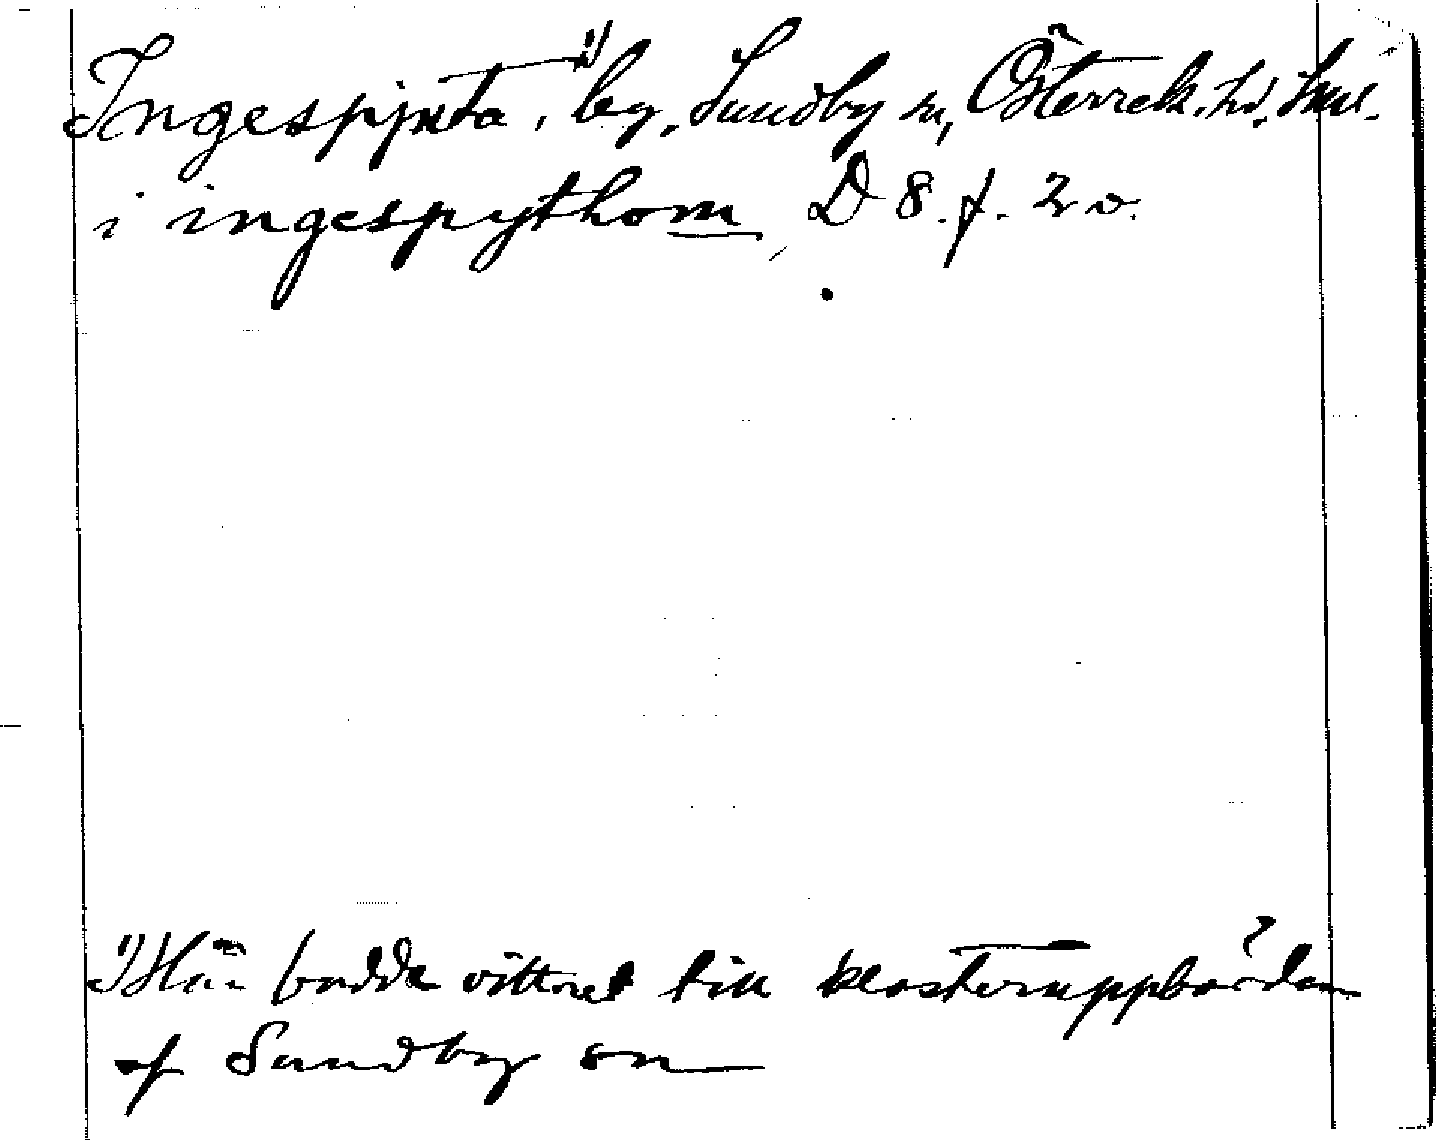 Ingespjuta ¹⁾, by, Sundby sn, Österrek. hd. Söml.
i ingespythom, D 8. f. 2 v.
¹⁾ Här bodde vittnet till klosteruppbörden
af Sundby sn